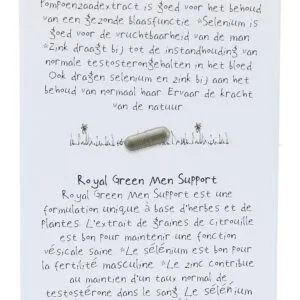 Pompoenzaadextract is goed voor het behoud
van een gezonde blaasfunctie *Selenium is
goed voor de vruchtbaarheid van de man
*Zink draagt bij tot de instandhouding van
normale testosterongehalten in het bloed
Ook dragen selenium en zink bij aan het
behoud van normaal haar. Ervaar de kracht
van de natuur
Royal Green Men Support
Royal Green Men Support est une
formulation unique à base d'herbes et de
plantes L'extrait de graines de citrouille
est bon pour maintenir une fonction
vésicale saine *Le sélénium est bon pour
la fertilité masculine *Le zinc contribue
au maintien d'un taux normal de
testostérone dans le sang Le sélénium